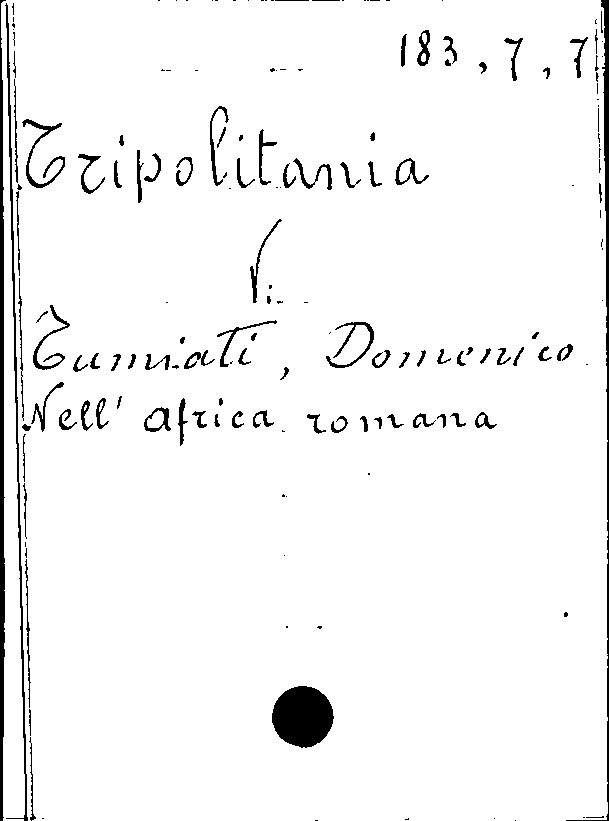 183, 7, 7
Tripolitania
V.
Tumiati, Domenico
Nell' Africa romana